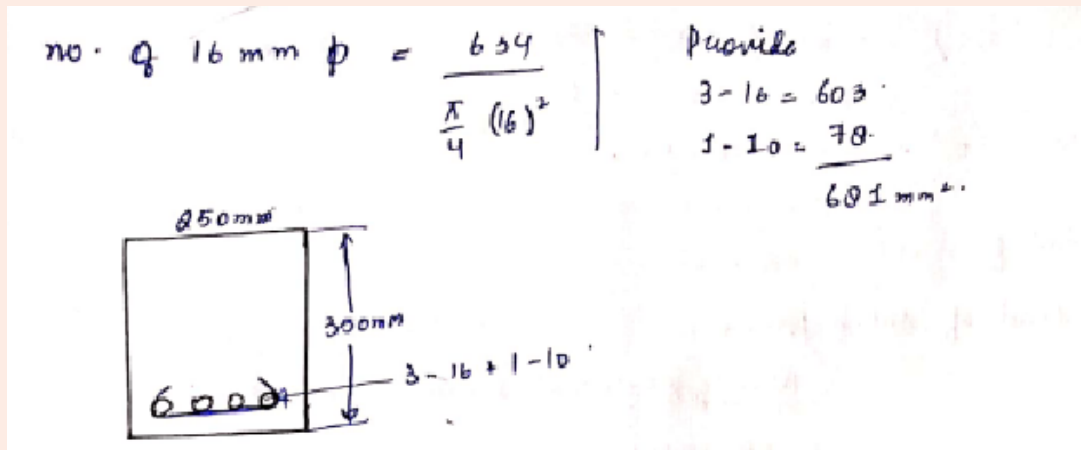 no. of 16 mm ϕ = 634 / π/4 (16)²
Provide
3-16 = 603
1-10 = 78
681 mm².
250mm
300mm
3-16 + 1-10